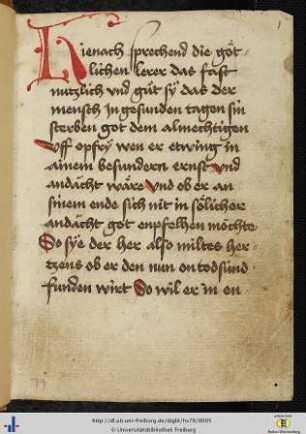 1
Hienach sprechend die göt
lichen lerer das fast
nutzlich vnd gůt sÿ das der
mensch In gesunden tagen sin
sterben got dem almechtigen
Vff opfry wen er etwing in
ainem besundern ernst Vnd
andächt wäre Vnd ob er an
sinem ende sich nit in sölicher
andächt got enpfelhen möchte
So sÿe der her also miltes her
tzens ob er den nun on todsünd
funden wirt So wil er in en
79
http://dl.ub.uni-freiburg.de/diglit/hs79/0005
© Universitätsbibliothek Freiburg